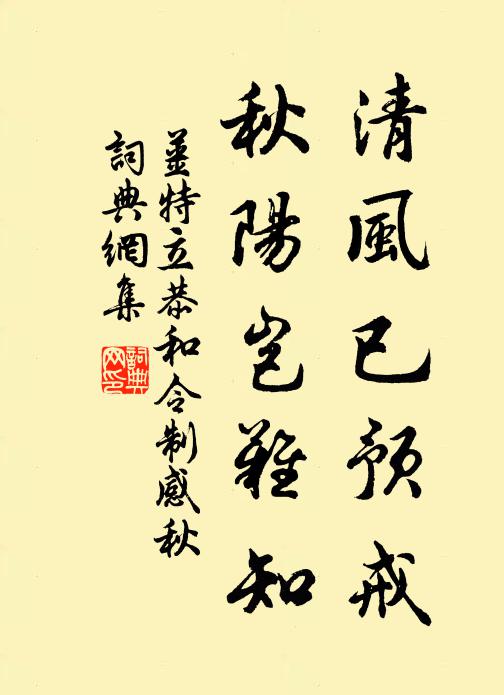 清風已預戒
秋陽豈難知
姜特立恭和令制感秋
詞典網集
詞典網印